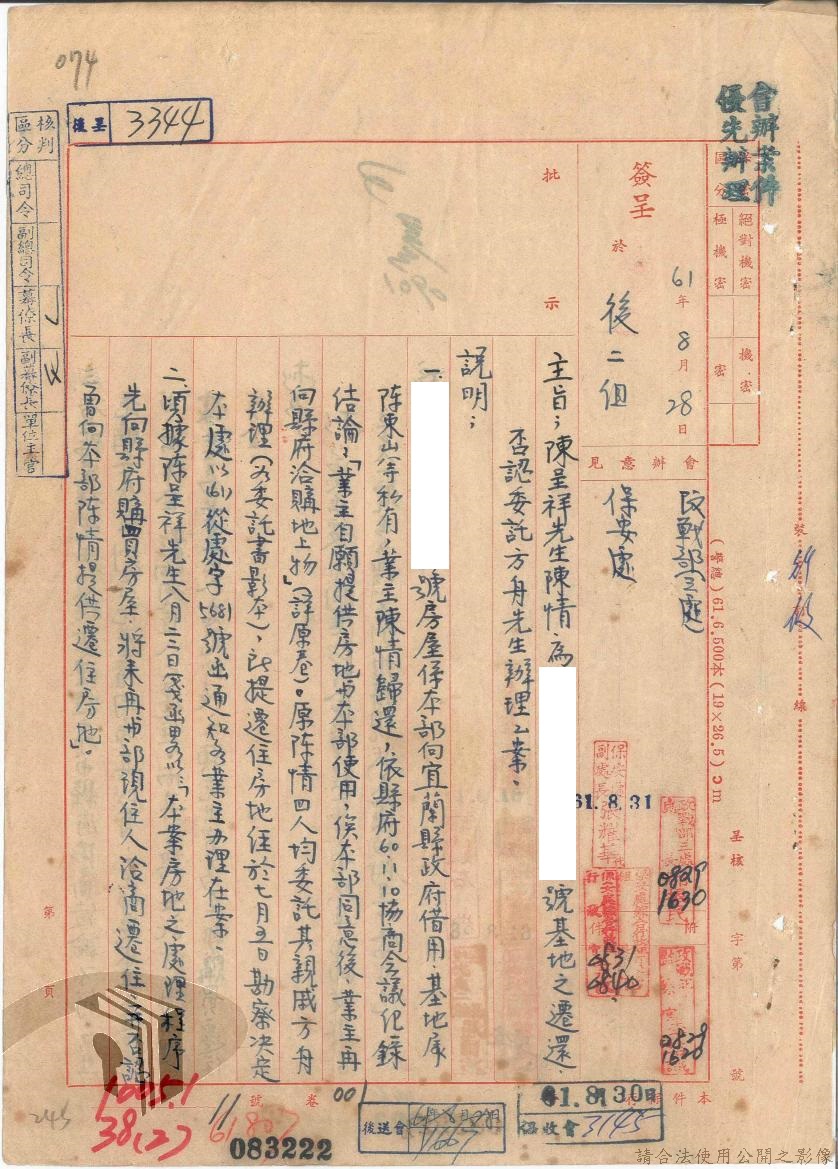 074
後呈 3344
會辦業件
優先辦理
核判區分
總司令
副總司令
幕僚長
副幕僚長
單位主官
區分
絕對機密
極機密
機密
密
簽呈
61年8月28日
於
後二組
會辦意見
政戰部(三處)
保安處
批示
主旨：陳呈祥先生陳情為
號基地之遷還、
否認委託方舟先生辦理乙案。
説明：
一、
號房屋係本部向宜蘭縣政府借用，基地屬
陈東山等私有，業主陳情歸還，依縣府60.11.10協商会議纪錄
结論：「業主自願提供房地与本部使用，俟本部同意後，業主再
向縣府洽購地上物」(詳原卷)。原陈情四人均委託其親戚方舟
辦理(如委託書影本)，所提遷住房地经於七月五日勘察决定
本處以(61)從處字5681號出通知各業主办理在案、
二、頃據陈呈祥先生八月二三日箋函畧以：「本案房地之處理程序
先向縣府購買房屋，將來再与部現住人洽商遷住，并否認
曾向本部陈情提供遷住房地」。
裝
線
(警總)61.6.500本(19×26.5)cm
呈核
字第
號
附
61.8.31
0829
1630
0831
0840
0828
1628
第
頁
本件
61.8月30日
總收會 3145
後送會
61年8月29日
1667
卷
001
號
11
61807
1005.1
38(2)
083222
245
請合法使用公開之影像